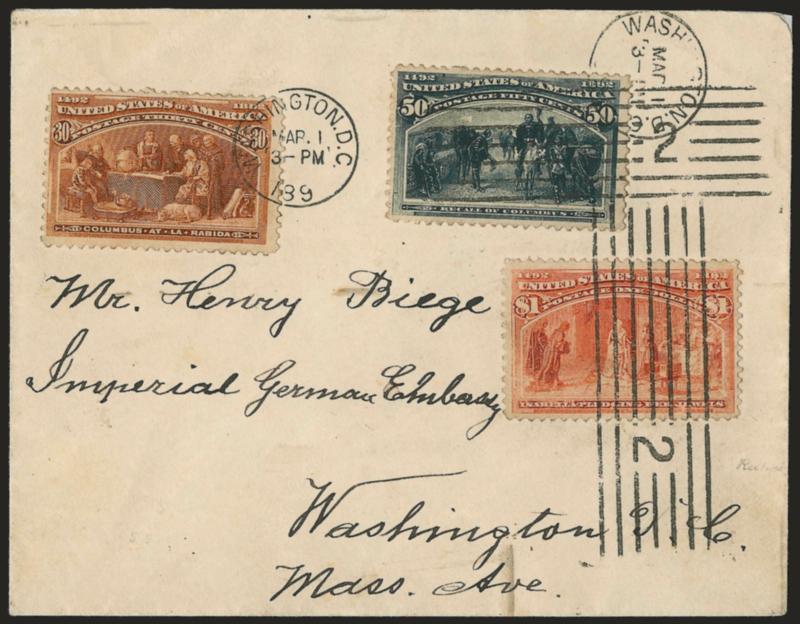 1492
UNITED STATES OF AMERICA
POSTAGE THIRTY CENTS
30 30
COLUMBUS · AT · LA · RABIDA
WASHINGTON, D.C.
MAR. 1
3 - PM
189
1492 1892
UNITED STATES OF AMERICA
POSTAGE FIFTY CENTS
50 50
RECALL OF COLUMBUS
WASHINGTON
MAR
3 -
2
1492
UNITED STATES OF AMERICA
POSTAGE ONE DOLLAR
$1 $1
2
Mr. Henry Biege
Imperial German Embassy
Washington D.C.
Mass. Ave.